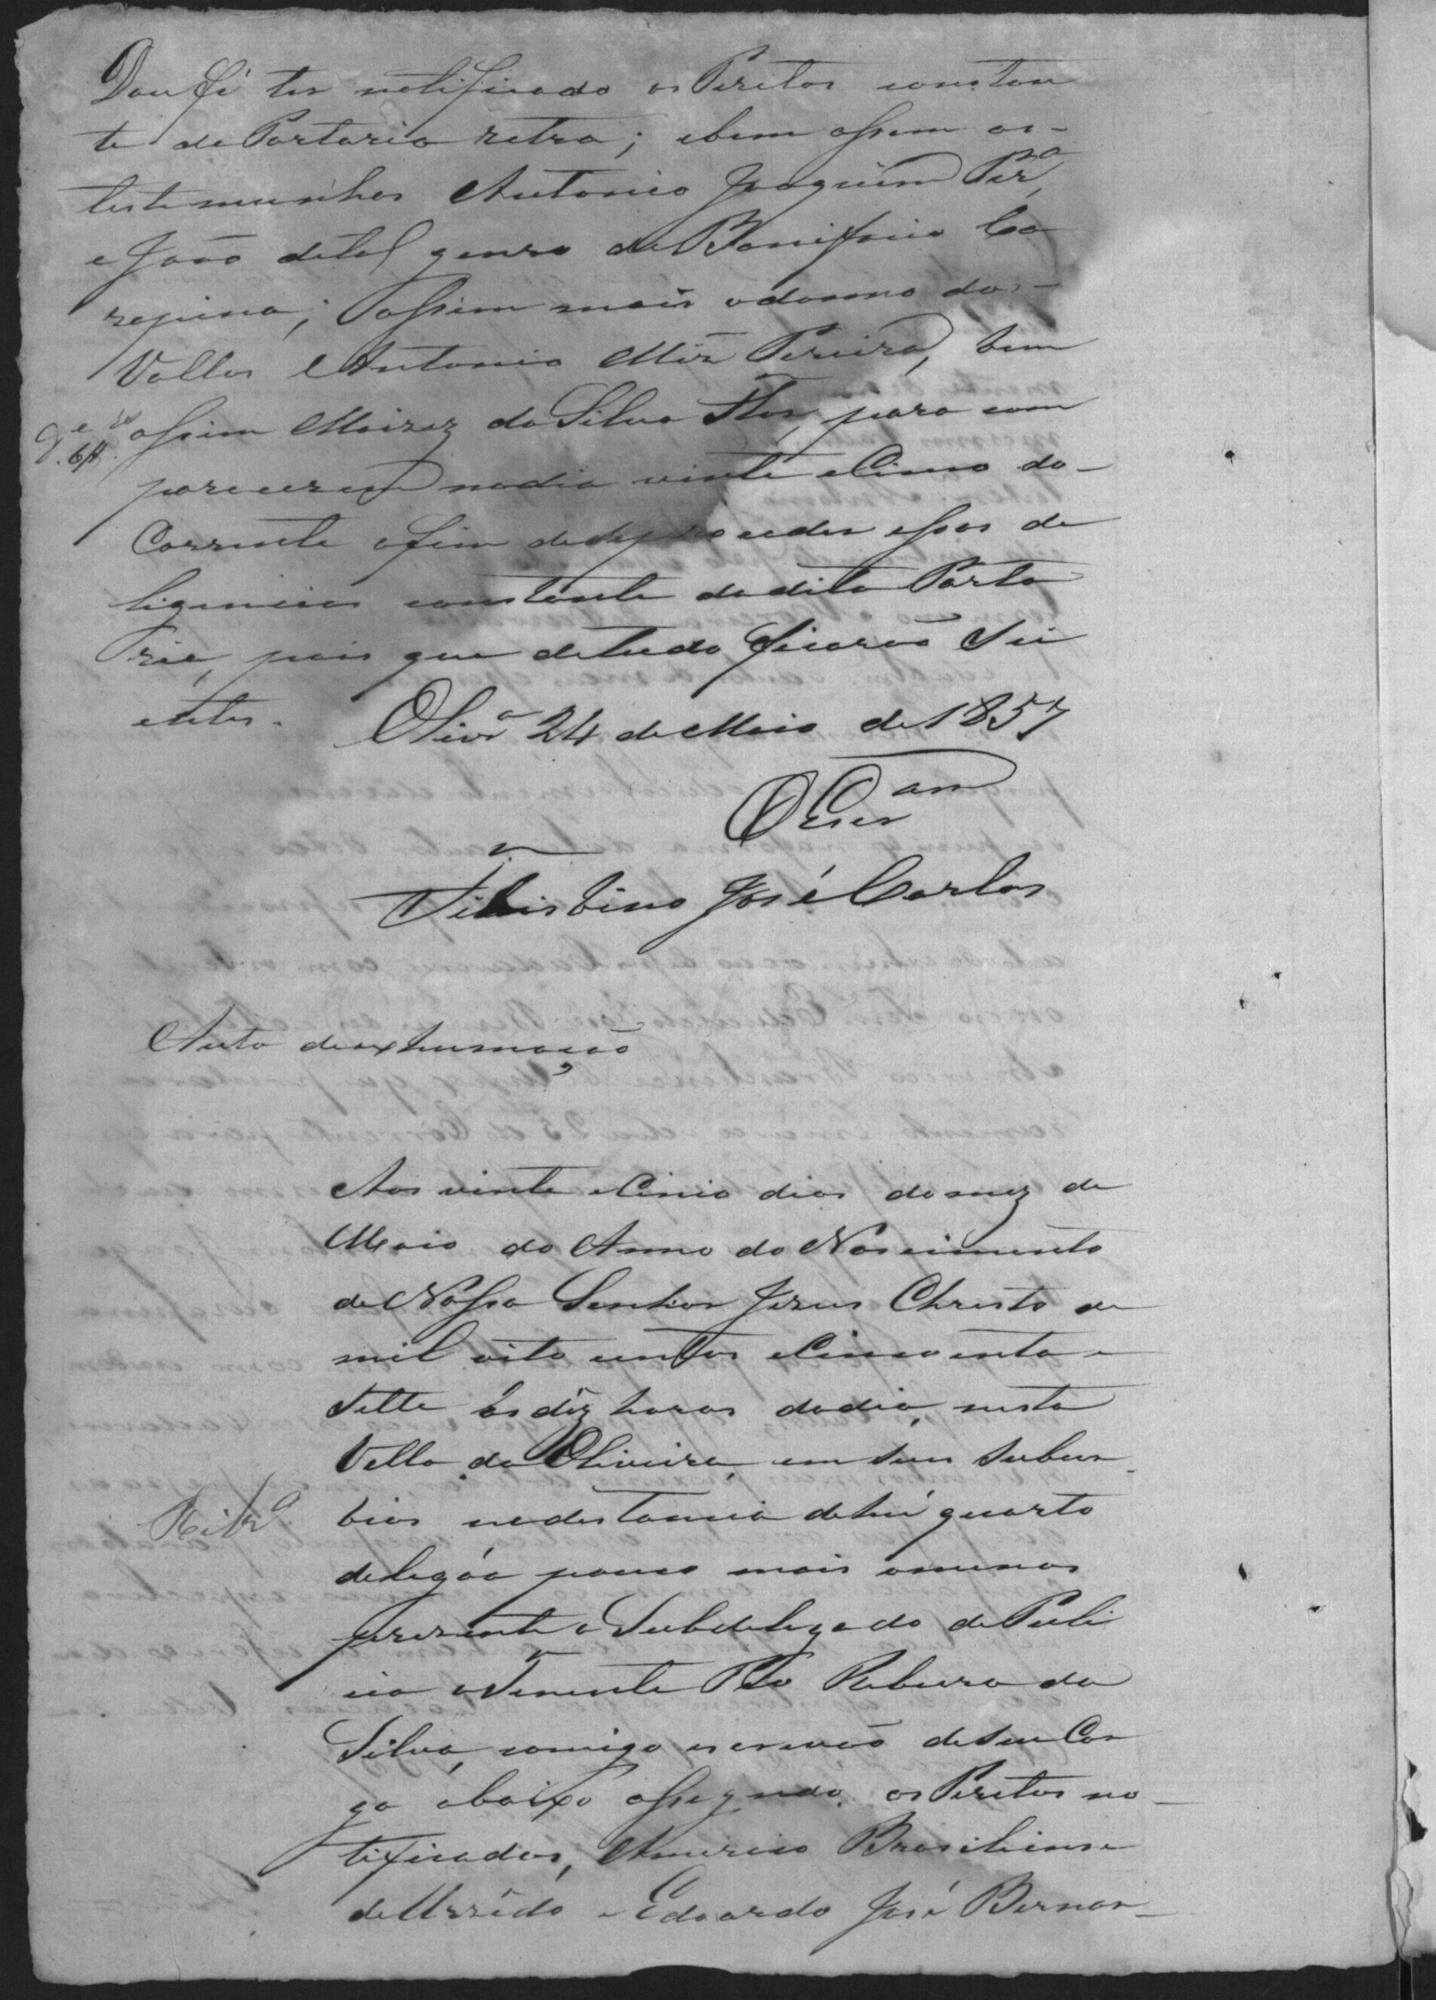 Dou fé ter notificado os Peritos constan
te da Portaria retra; ebem assim as
testemunhas Antonio Joaquim Per.ª
e João detal genro de Bonifacio Ca
rapina; Eassim mais odonno dos
Vallos Antonio Miz Pereira, bem
assim Moizez da Silva Flor, para com
parecerem nodia vinte eCinco do
Corrente afim de proceder essas de
ligencias constante dadita Porta
ria, pois que detudo ficarão Sci
entes. Olivr.ª 24 de Maio de 1857
O Escr.am
Felisbino José Carlos
Auto deexhumação
Aos vinte eCinco dias domez de
Maio do Anno do Nascimento
de Nosso Senhor Jezus Christo de
mil oito centos eCincoenta e
Sette ás déz horas dodia, nesta
Villa da Oliveira, em seus subur
bios nadestancia dehú quarto
delegoa pouco mais omenos
prezente o Subdelegado de Poli
cia oTenente Pio Rabeiro da
Silva, comigo escrivão deseu Car
go abaixo assignado, os Peritos no
tificados, Americo Brasiliense
de Urzédo e Edoardo José Bernar